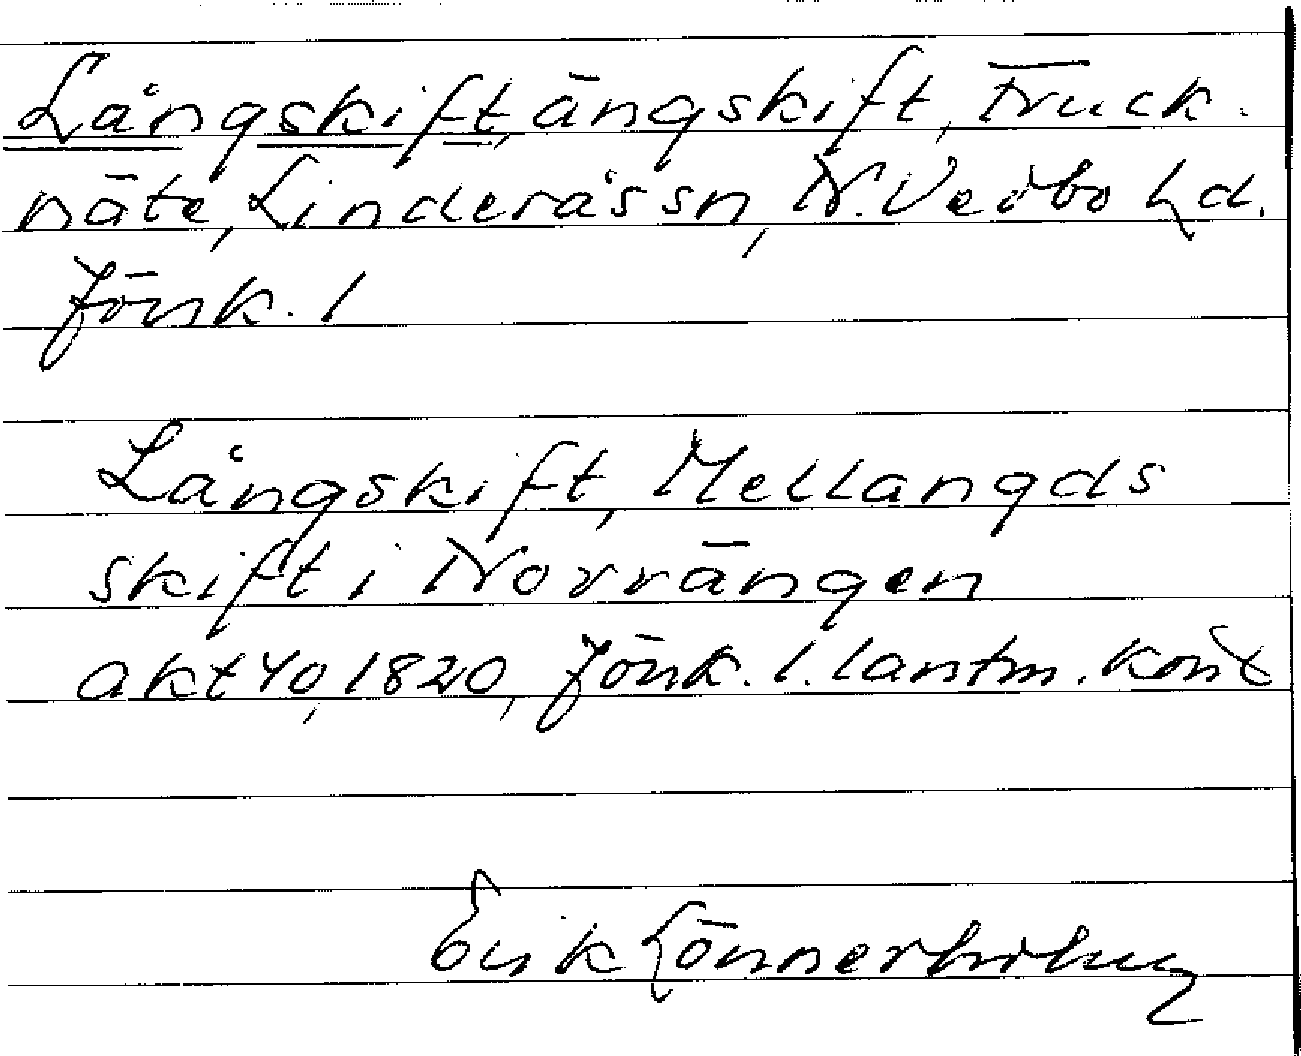 Långskift, ängskift, Truck-
näte, Linderås sn, N. Vedbo hd.
Jönk. l
Långskift, Mellangds
skift i Norrängen
akt 40, 1820, Jönk. l. lantm. kont
Erik Lönnerholm